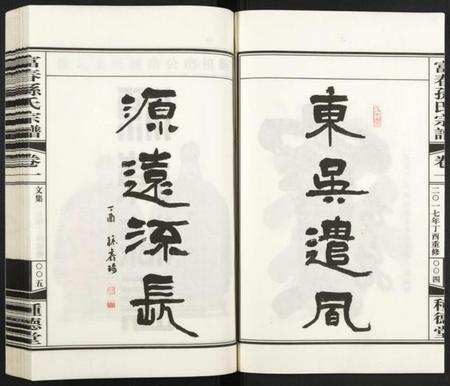 富春孫氏宗譜
卷一
二〇一七年丁酉重修
〇〇四
種德堂
東吳遺風
源遠流長
丁酉 孫
富春孫氏宗譜
卷一
文集
〇〇五
種德堂